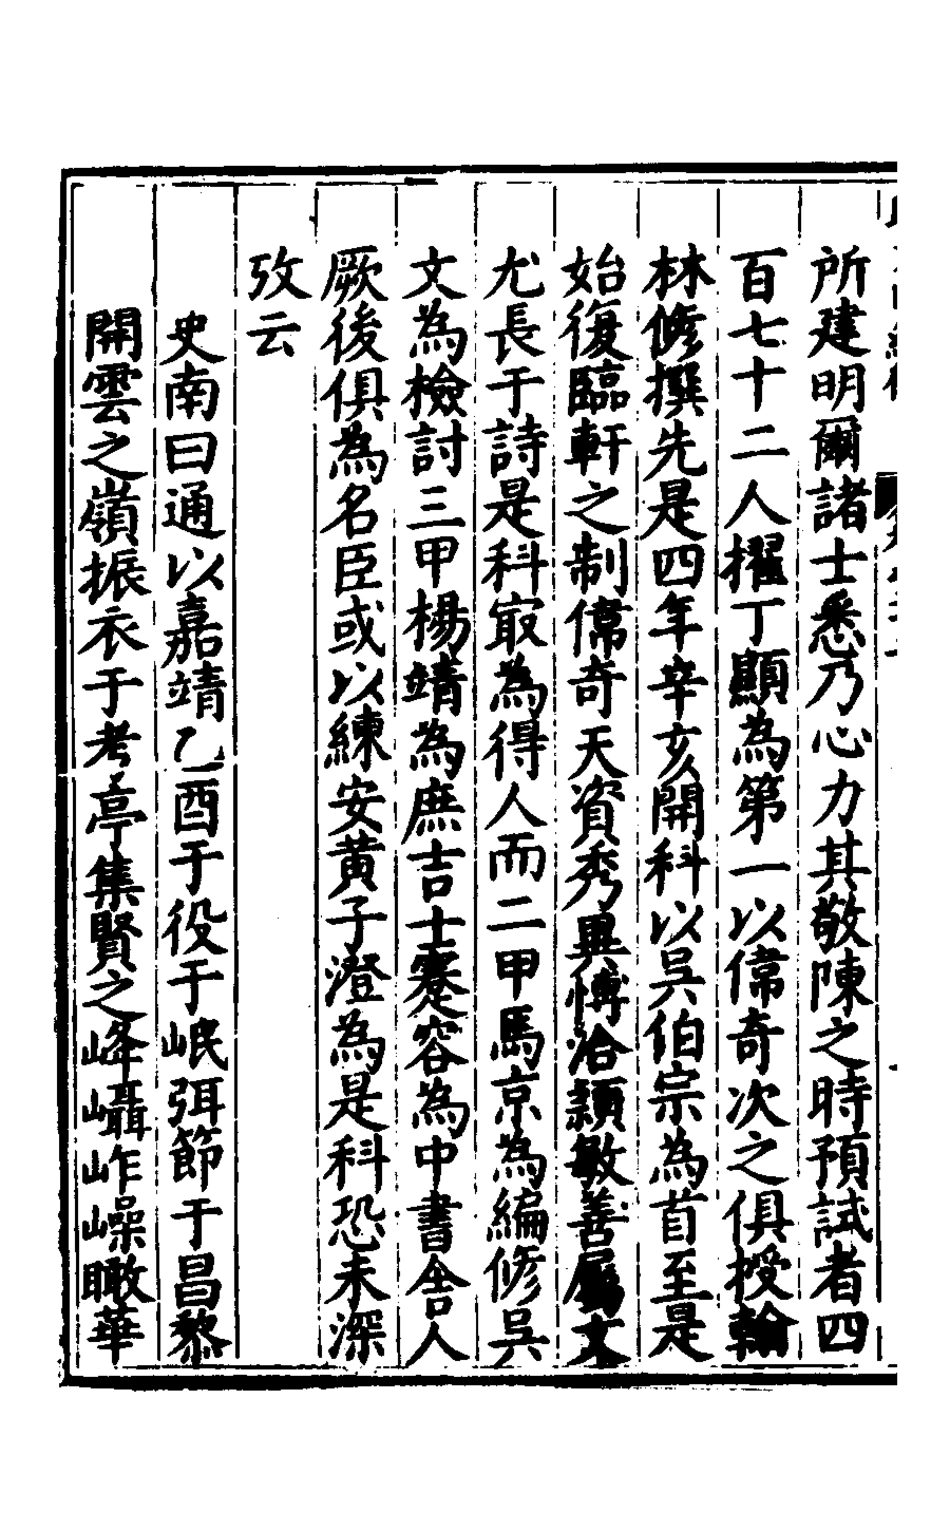 所建明爾諸士悉乃心力其敬陳之時預試者四
百七十二人擢丁顯為第一以儒奇次之俱授翰
林修撰先是四年辛亥開科以吳伯宗為首至是
始復臨軒之制儒奇天資秀異博洽穎敏善屬文
尤長于詩是科㝡為得人而二甲馬京為編修吳
文為檢討三甲楊靖為庶吉士蹇容為中書舍人
厥後俱為名臣或以練安黄子澄為是科恐未深
攷云
史南曰通以嘉靖乙酉于役于岷弭節于昌黎
開雲之嶺振衣于考亭集賢之峰㠌岝㠎瞰華